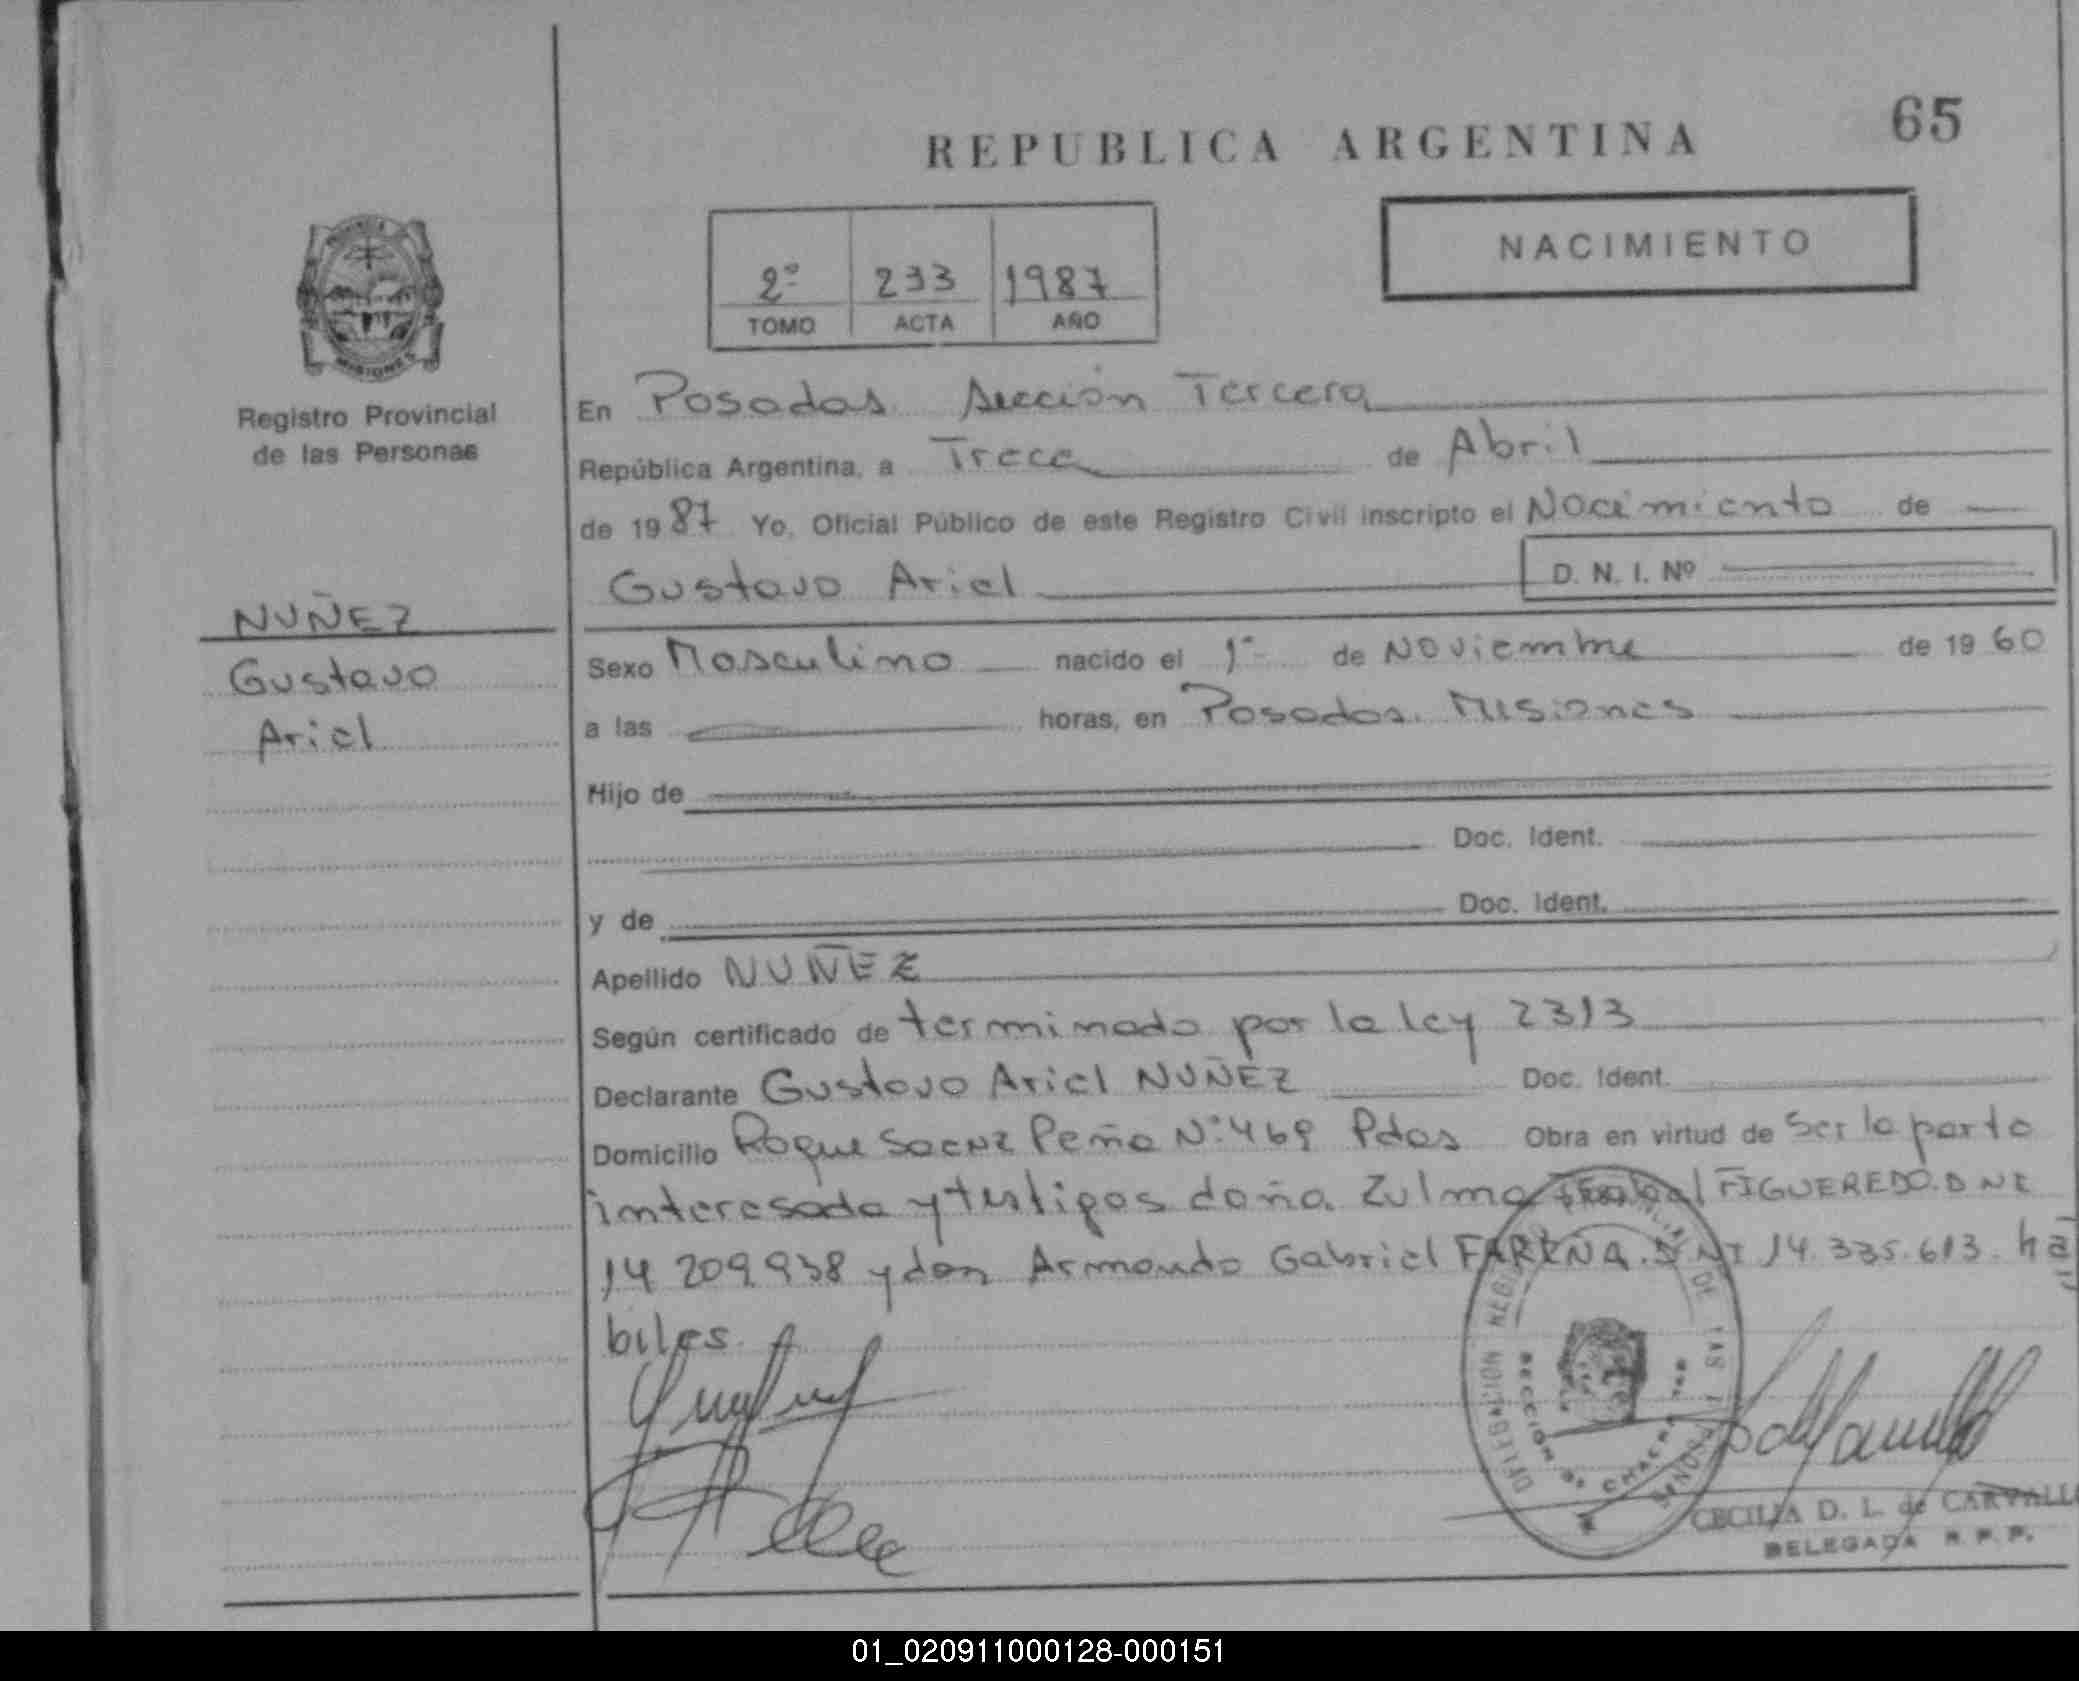 65
REPUBLICA ARGENTINA
NACIMIENTO
2º 233 1987
TOMO ACTA AÑO
MISIONES
Registro Provincial
de las Personas
NUÑEZ
Gustavo
Ariel
En Posadas Sección Tercera
República Argentina, a Trece de Abril
de 1987 Yo, Oficial Público de este Registro Civil inscripto el Nacimiento de
Gustavo Ariel D. N. I. Nº
Sexo Masculino nacido el 1º de Noviembre de 1960
a las horas, en Posadas. Misiones
Hijo de
Doc. Ident.
y de Doc. Ident.
Apellido NUÑEZ
Según certificado de terminado por la ley 2313
Declarante Gustavo Ariel NUÑEZ Doc. Ident.
Domicilio Roque Saenz Peña Nº 469 Pdas Obra en virtud de Ser la parte
interesada y testigos doña Zulma FIGUEREDO. DNI
14 209.938 y don Armando Gabriel FARIÑA. DNI 14.335.613. há
biles.
SECCION DE CHACRA
CECILIA D. L. de CARVALLO
DELEGADA R. P. P.
01_020911000128-000151